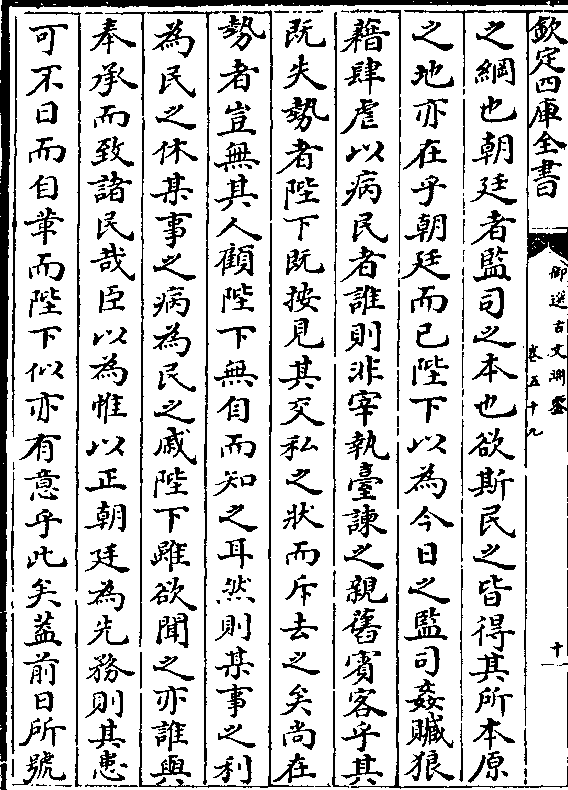 欽定四庫全書
御選古文淵鑒
卷五十九
十
之綱也朝廷者監司之本也欲斯民之皆得其所本原
之地亦在乎朝廷而已陛下以為今日之監司姦贓狼
藉肆虐以病民者誰則非宰執臺諫之親舊賓客乎其
既失勢者陛下既按見其交私之狀而斥去之矣尚在
勢者豈無其人顧陛下無自而知之耳然則某事之利
為民之休某事之病為民之戚陛下雖欲聞之亦誰與
奉承而致諸民哉臣以為惟以正朝廷為先務則其患
可不日而自革而陛下似亦有意乎此矣蓋前日所號